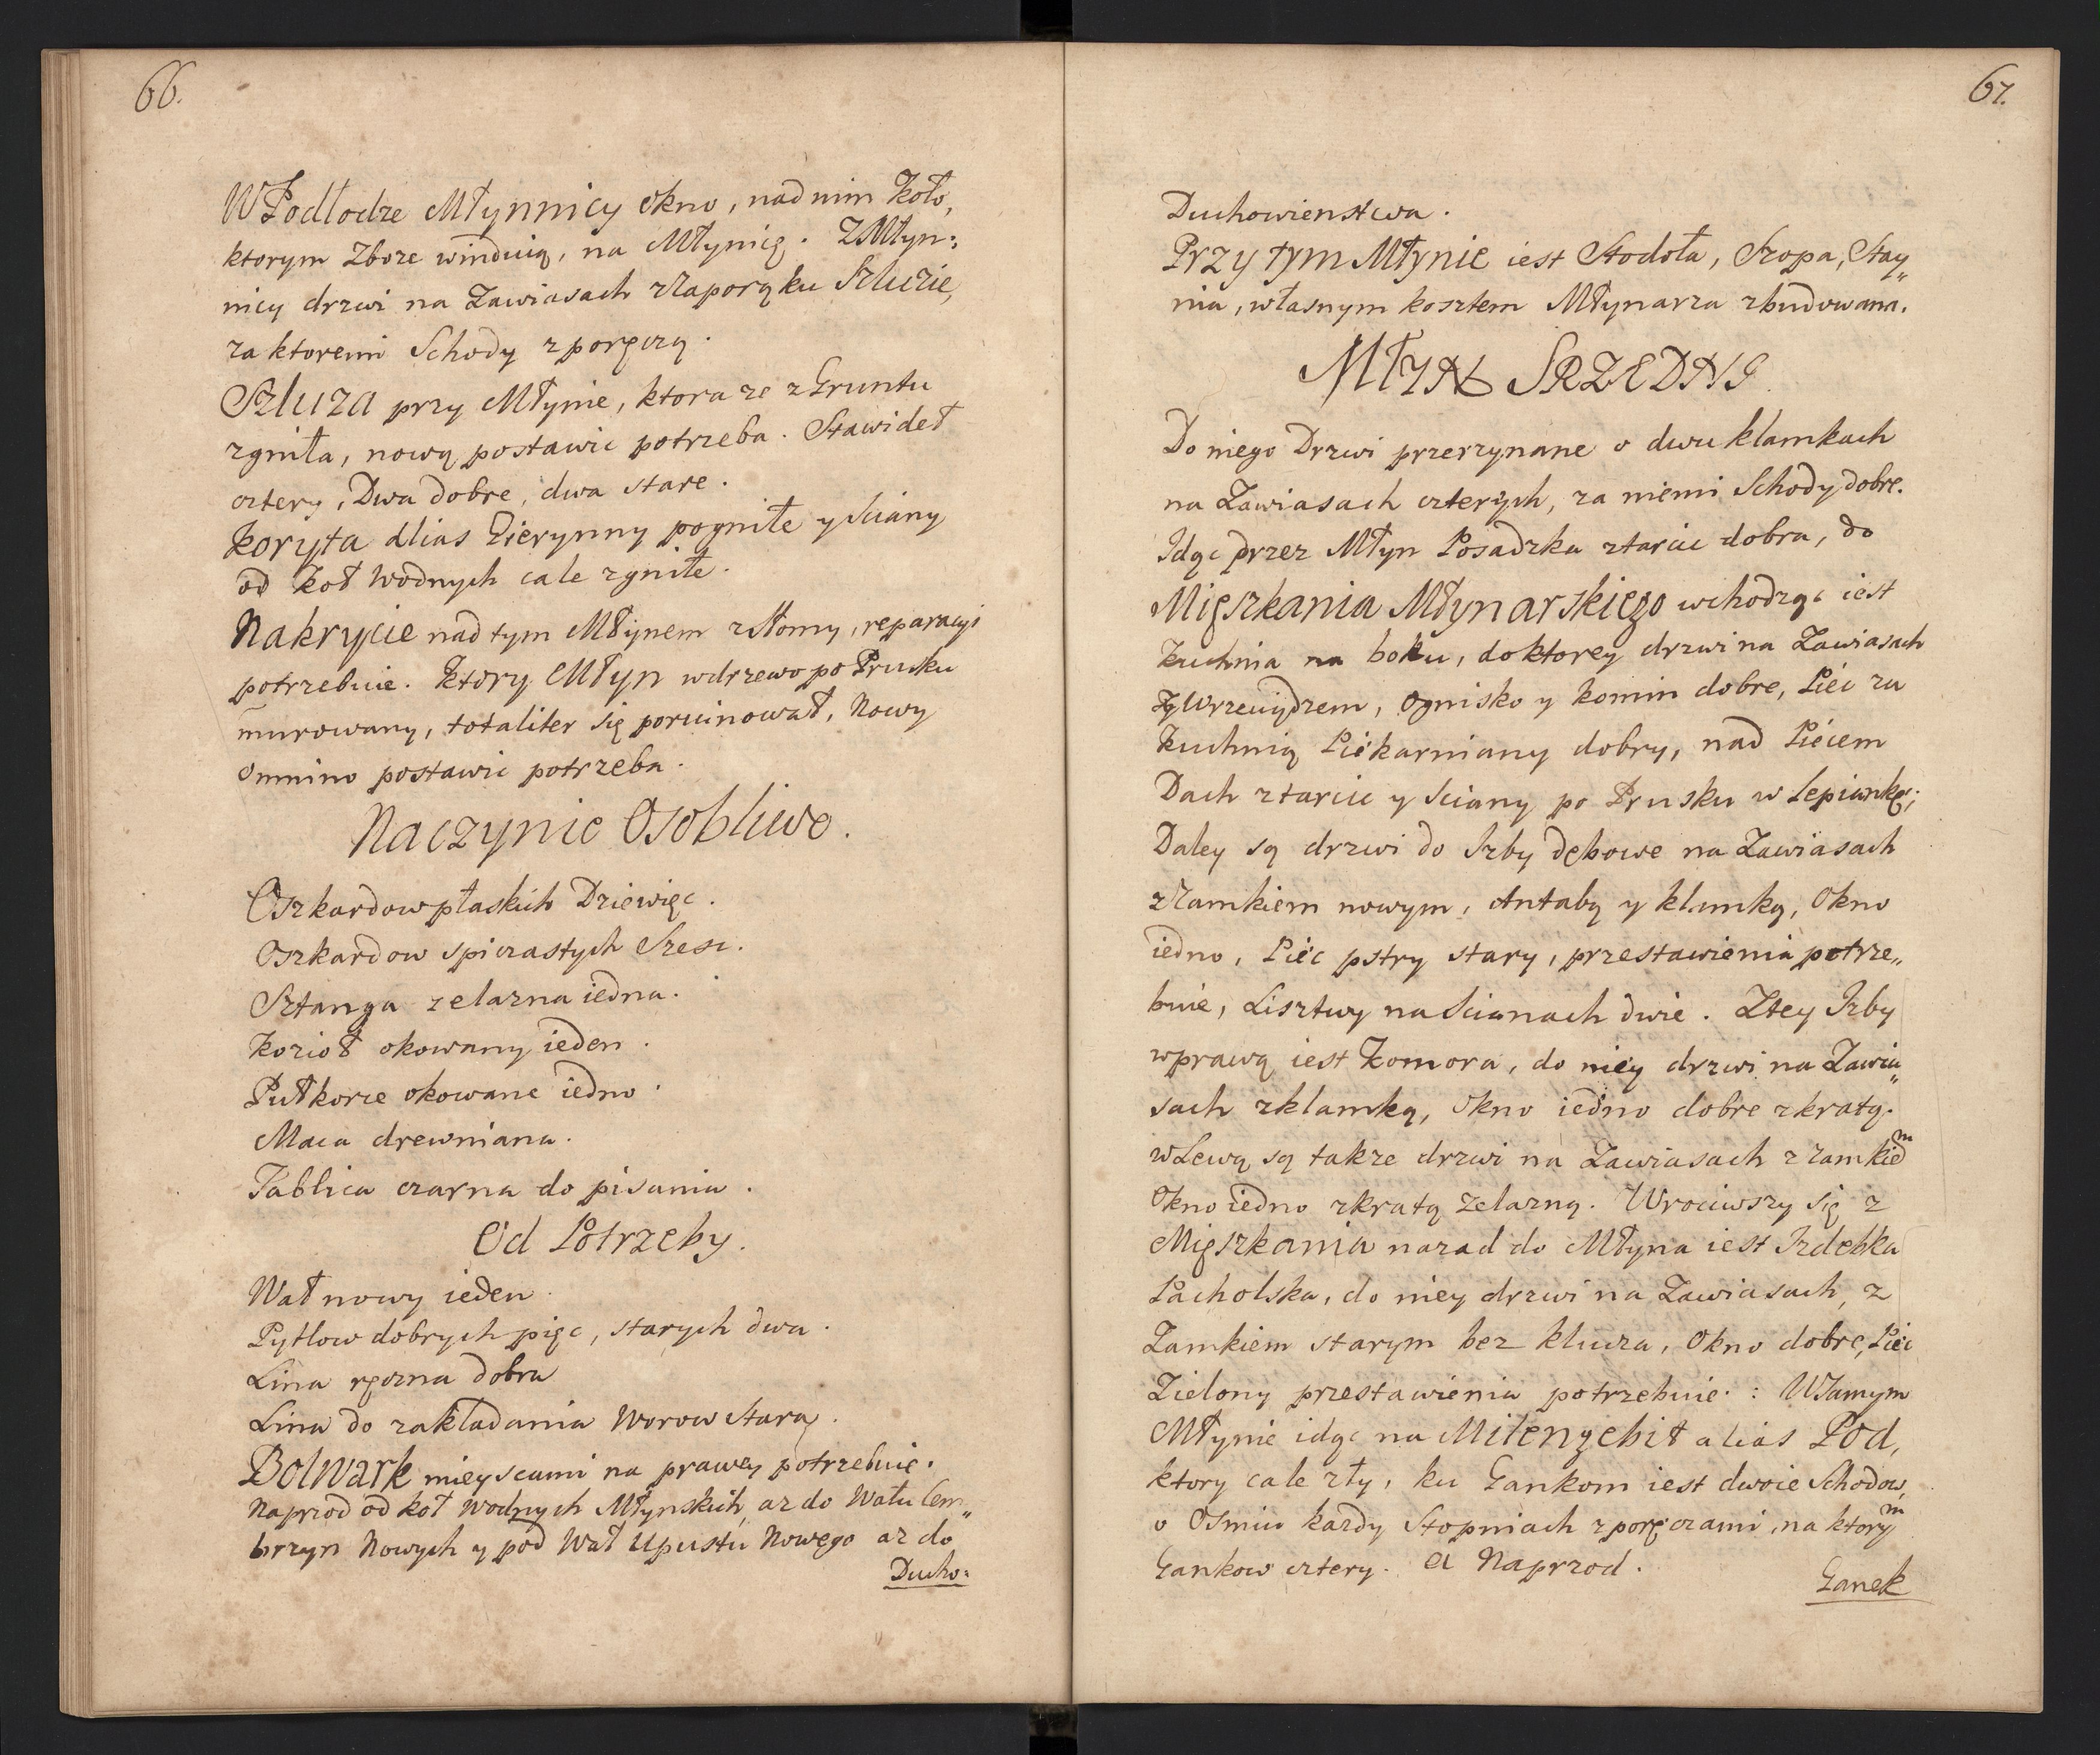 66.
W Podłodze Młynnicy okno, nad nim Koło,
ktorym Zboze winduią, na Młynicę. Z Młyn:
nicy drzwi na Zawiasach z Zaporą ku Szluzie,
za ktoremi Schody z poręczą.
Szluza przy Młynie, ktora ze z Gruntu
zgniła, nową postawic potrzeba. Stawideł
cztery, Dwa dobre, dwa stare.
Koryta alias Gierynny pogniłe y Sciany
od Koł Wodnych cale zgniłe.
Nakrycie nad tym Młynem z Słomy, reparacyi
potrzebuie. Ktory Młyn w drzewo po Prusku
murowany, totaliter się poruinował, Nowy
omnino postawic potrzeba.
Naczynie Osobliwe.
Oszkardow płaskich Dziewięc.
Oszkardow spiczastych Szesc.
Sztanga zelazna iedna.
Kozioł okowany ieden.
Pułkorce okowane iedno.
Maca drewniana.
Tablica czarna do pisania.
Od Potrzeby.
Wał nowy ieden.
Pytlow dobrych pięc, starych dwa.
Lina ręczna dobra
Lina do zakładania Worow Stara.
Bolwark mieyscami na prawey potrzebuie.
Naprzod od koł Wodnych Młynskich, az do Wału Cem„
brzyn Nowych y pod Wał Upustu Nowego az do
Ducho:
67.
Duchowienstwa.
Przy tym Młynie iest Stodoła, Szopa, Stay„
nia, własnym kosztem Młynarza zbudowana.
MŁYN SRZEDNI
Do niego Drzwi przerzynane o dwu klamkach
na Zawiasach czterych, za niemi Schody dobre.
Idąc przez Młyn Posadzka z tarcic dobra, do
Mięszkania Młynarskiego wchodząc iest
Kuchnia na boku, do ktorey drzwi na Zawiasach
z Wrzeciądzem, Ognisko y Komin dobre, Piec za
Kuchnią Piekarniany dobry, nad Piecem
Dach z tarcic y Sciany po Prusku w Lepiankę;
Daley są drzwi do Izby dębowe na Zawiasach
z Zamkiem nowym, Antabą y klamką, Okno
iedno, Piec pstry stary, przestawienia potrze„
buie, Lisztwy na Scianach dwie. Z tey Izby
w prawą iest Komora, do niey drzwi na Zawia„
sach z klamką, Okno iedno dobre z kratą.
w Lewą są takze drzwi na Zawiasach z Zamkiem
Okno iedno z kratą Zelazną. Wrociwszy się z
Mięszkania nazad do Młyna iest Izdebka
Pacholska, do niey drzwi na Zawiasach, z
Zamkiem starym bez klucza, Okno dobre, Piec
Zielony przestawienia potrzebuie: W Samym
Młynie idąc na Milengebit alias Pod,
ktory cale zły, ku Gankom iest dwoie Schodow,
o Osmiu kazdy Stopniach z poręczami, na ktorym
Gankow cztery. A Naprzod.
Ganek